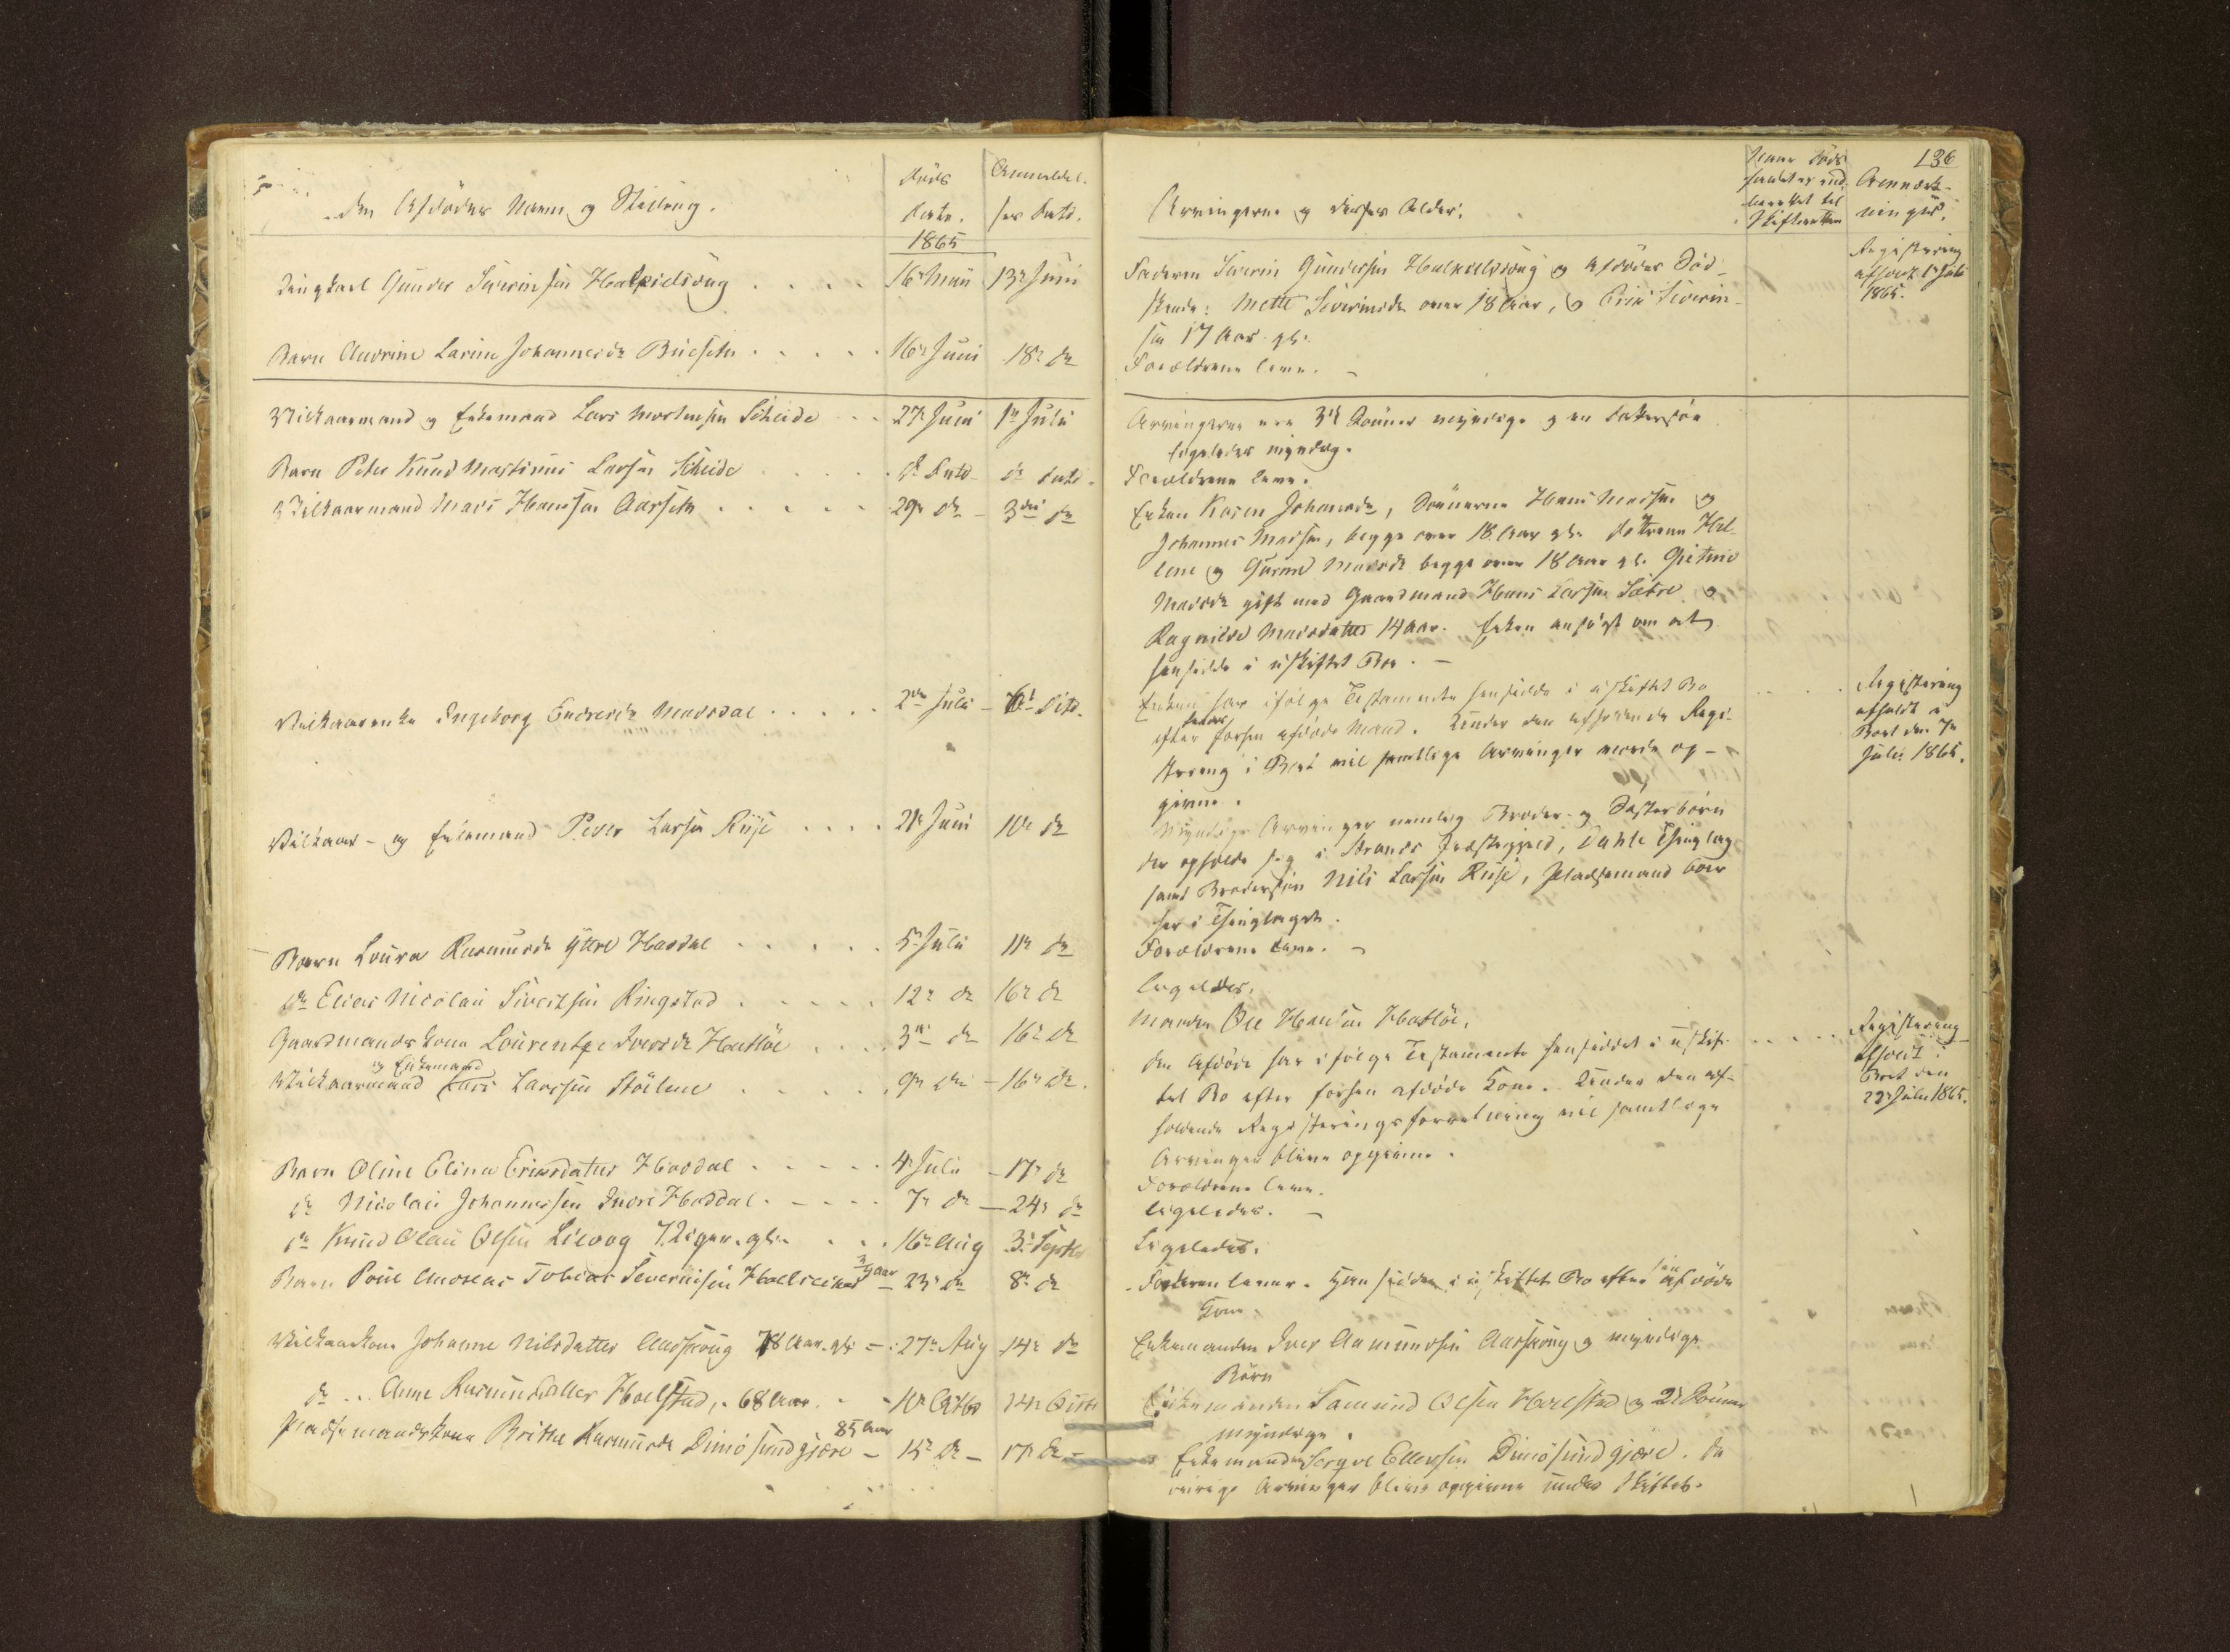 Den Afdødes Navn og Stilling.
Døds
Dato.
Anmeldel-
ses Dato.
1865
Ungkarl Gunder Severinsen . . . . 16 Mai 13 Juni
Barn Andrine Larine Johannesdr . . . . . 16 Juni 18 dr
Vilkaarmand og Enkemand Lars Mortensen Scheide . . 27 Juni 1 Juli
Barn Peter Knud Martinus Larsen Scheide . . . . . dr Dato dr Dato.
Vilkaarmand Mads Hansen Aarseth . . . . . 29 dr 3die dr
Vilkaarenke Ingeborg Endresdr Mardal . . . . . 2den Juli Dito.
Vilkaar- og Enkemand Peder Larsen Riise . . . . 21 Juni 10 dr
Barn Loura Rasmusdr Ytre Hasdal . . . . . 5 Juli 11 dr
dr Elias Nicolai Sivertsen Ringstad . . . . . 12 dr 16 dr
Gaardmandskone Lourentze Iversdr Hatløe . . . . 3 dr 16 dr
og Enkemand
Vilkaarmand Lars Larssen Støilene . . . . . 9 16 dr.
Barn Oline Elina Eriksdatter Hasdal . . . . . 4 Juli 17 dr
dr Nicolai Johannessen Indre Hasdal . . . . 7 dr 24 dr
dr Knud Olaus Olsen Lievog 7 Uger gl. . . . 16 Aug 3 Septbr
3/4 Aar
Barn Poul Andreas Tobias Severinsen 23 dr 8 dr
Vilkaarkone Johanne Nilsdatter Aarskoug 78 Aar gl. 27 Aug 14 dr
dr . . Anne Rasmusdatter Hoelstad, 68 Aar . . 10 Octbr 14 Octbr
85 Aar
Pladsemandskone Brithe Rasmusdr Dimøsundgjære 15 dr 17 dr
136
Arvingerne og deres Alder.
Naar Døds
faldet er ind
berettet til
Skifteretten
Anmærk-
ninger.
Faderen Severin Gundersen og Afdødes Sød-
skende: Mette Severinsdr over 18 Aar, og Erik Severin-
sen 17 Aar gl.
Registrering
afholdt Juli
1865.
Forældrene leve.
Arvingerne ere 3 Sønner myndige og en Dattersøn
ligeledes myndig.
Forældrene leve.
Enken Karen Johansdr, Sønnerne Hans Madsen og
Johannes Madsen, begge over 18 Aar gl. Døttrene Hel-
lene og Gurine Madsdr begge over 18 Aar gl. Gietine
Madsdr gift med Gaardmand Hans Larsen Sætre og
Ragnilde Madsdatter 14 Aar. Enken ansøgt om at
hensidde i uskiftet Boe.
Enken har ifølge Testamente hensiddet i uskiftet Bo
efter hendes afdøde Mand. Under den afholdende Regi-
strering i Boet vil samtlige Arvinger vorde op-
givne.
Registrering
afholdt i
Boet den 7
Juli 1865.
Myndige Arvinger nemlig Broder- og Søsterbørn
der opholde sig i Strands Præstegjeld, Dahle Thinglag
samt Brodersøn Nils Larsen Riise, Pladsemand boer
her i Thinglaget.
Forældrene leve.
Ligeledes.
Manden Ole Hansen Hatløe.
Den Afdøde har ifølge Testamente hensiddet i uskif-
tet Bo efter afdøde Kone. Under den af-
holdende Registreringsforretning vil samtlige
Arvinger blive opgivne.
Registrering
afholdt i
Boet den
22 Juli 1865.
Forældrene leve.
Ligeledes.
Ligeledes.
Faderen lever. Han sidder i uskiftet Bo efter sin afdøde
Kone.
Enkemanden Iver Aamundsen Aarskoug og myndige
Børn
Enkemanden Samund Olsen Hoelstad og 2 Sønner
myndige.
Enkemanden Ellensen Dimøsundgjære. De
øvrige Arvinger blive opgivne under Skiftet.